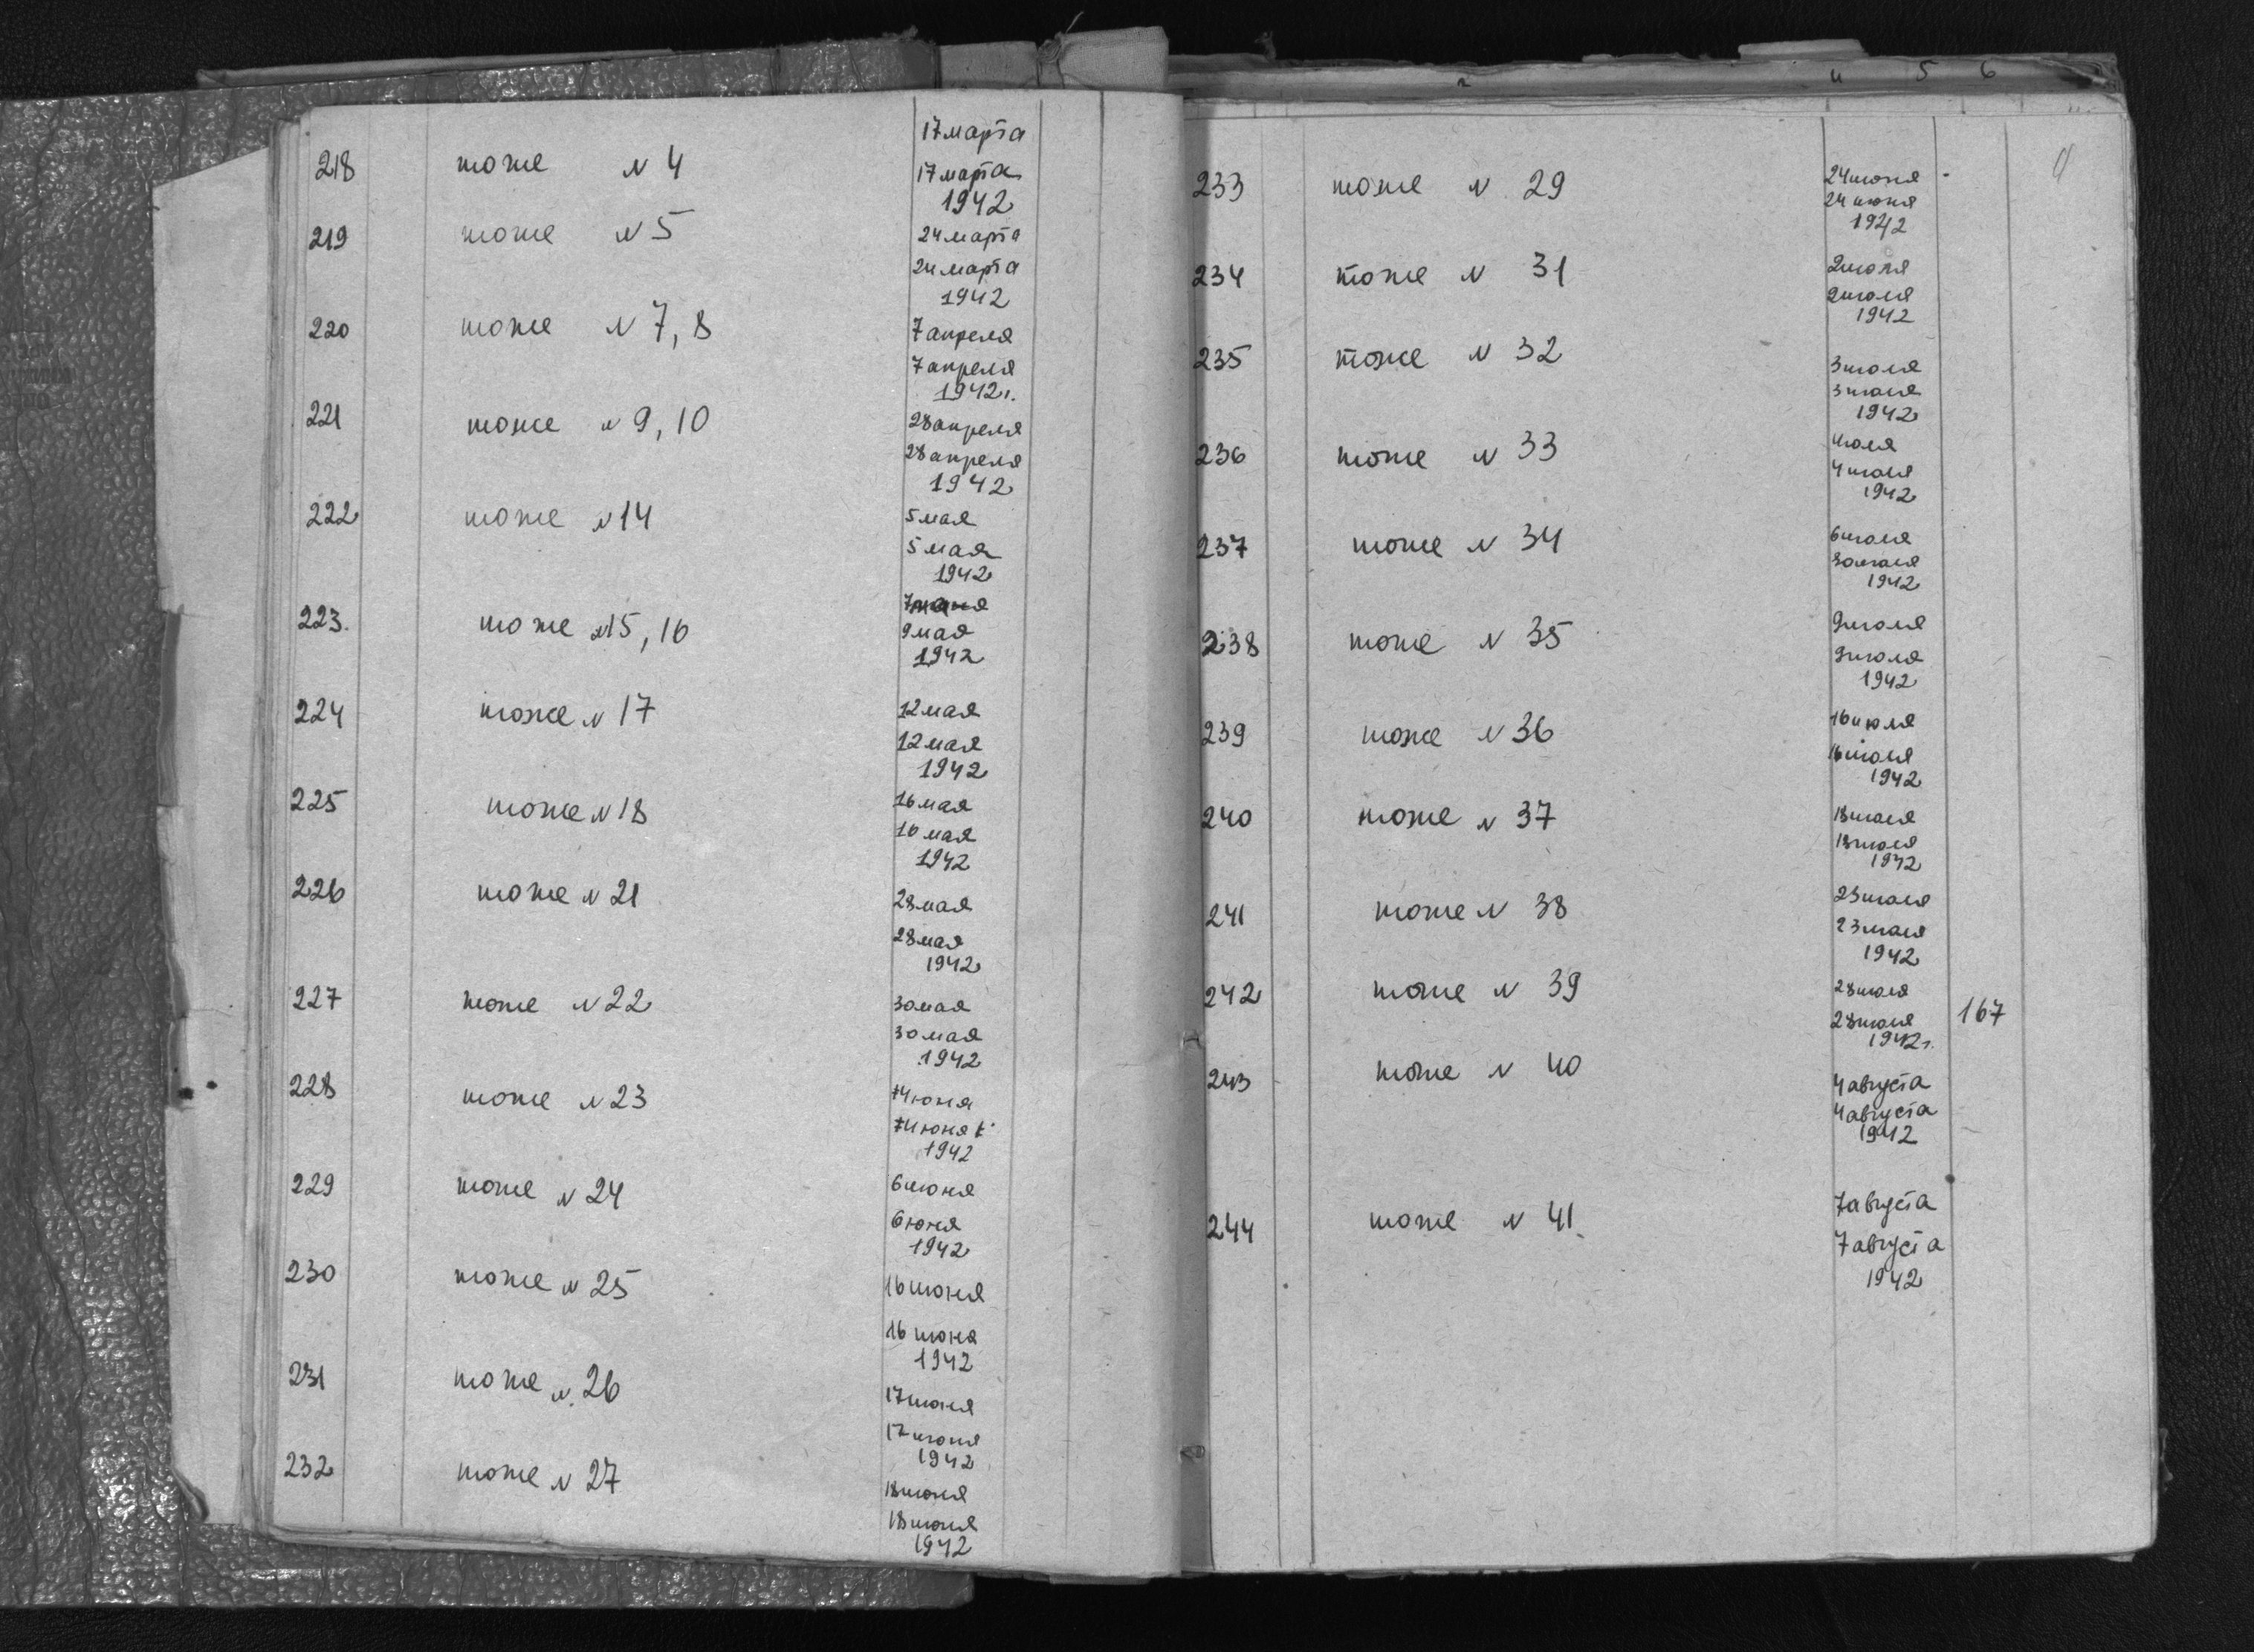 17 марта
218 тоже N 4 17 марта
1942
219 тоже N 5 24 марта
24 марта
1942
220 тоже N 7, 8 7 апреля
7 апреля
1942г.
221 тоже N 9, 10 28 апреля
28 апреля
1942
222 тоже N 14 5 мая
5 мая
1942
223. тоже N 15, 16
9 мая
1942
224 тоже N 17 12 мая
12 мая
1942
225 тоже N 18 16 мая
16 мая
1942
226 тоже N 21 28 мая
28 мая
1942
227 тоже N 22 30 мая
30 мая
1942
228 тоже N 23 4 юня
4 юня
1942
229 тоже N 24 6 июня
6 юня
1942
230 тоже N 25 16 июня
16 июня
1942
231 тоже N 26 17 июня
17 июня
1942
232 тоже N 27 18 июня
18 июня
1942
4 5 6
233 тоже N 29 24 июня
24 июня
1942
234 тоже N 31 2 июля
2 июля
1942
235 тоже N 32 3 июля
3 июля
1942
236 тоже N 33 4 юля
4 июля
1942
237 тоже N 34 6 июля
июля
1942
238 тоже N 35 9 июля
9 июля
1942
239 тоже N 36 16 июля
16 июля
1942
240 тоже N 37 18 июля
18 июля
1942
241 тоже N 38 23 июля
23 июля
1942
242 тоже N 39 28 июля
28 июля 167
1942г.
243 тоже N 40 4 августа
4 августа
1942
244 тоже N 41. 7 августа
7 августа
1942